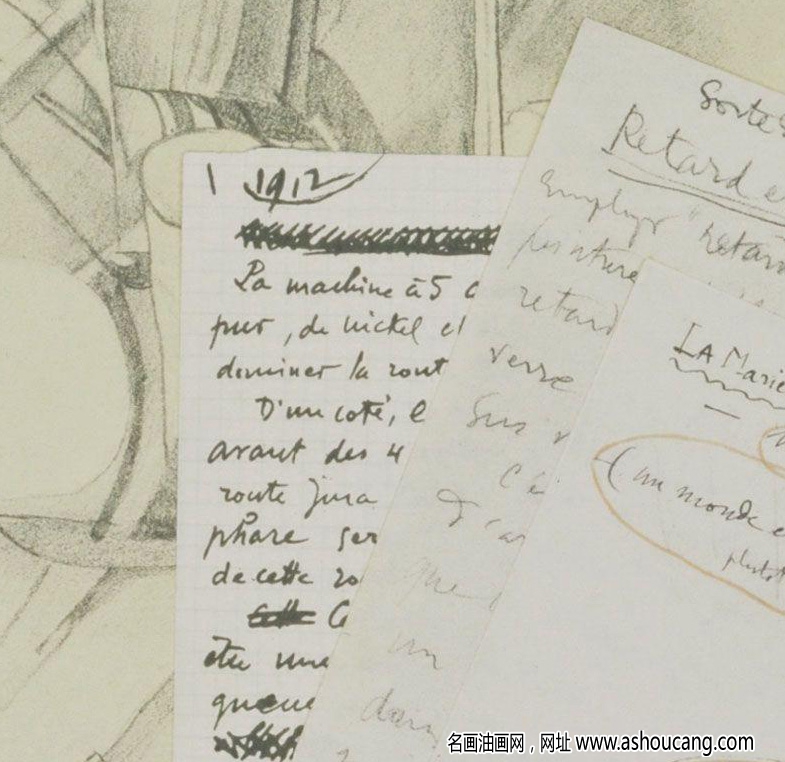 1 1912
La machine à 5 c
pur, de nickel et
dominer la rout
D'un coté, l
avant des 4
route Jura
phare ser
de cette ro
C
être une
queue
Sorte
Retard e
Employer "retar
peinture
retard
verre
Sur
C'
d'a
que
un
dans
LA Marié
(un monde e
plutôt
名画油画网，网址 www.ashoucang.com